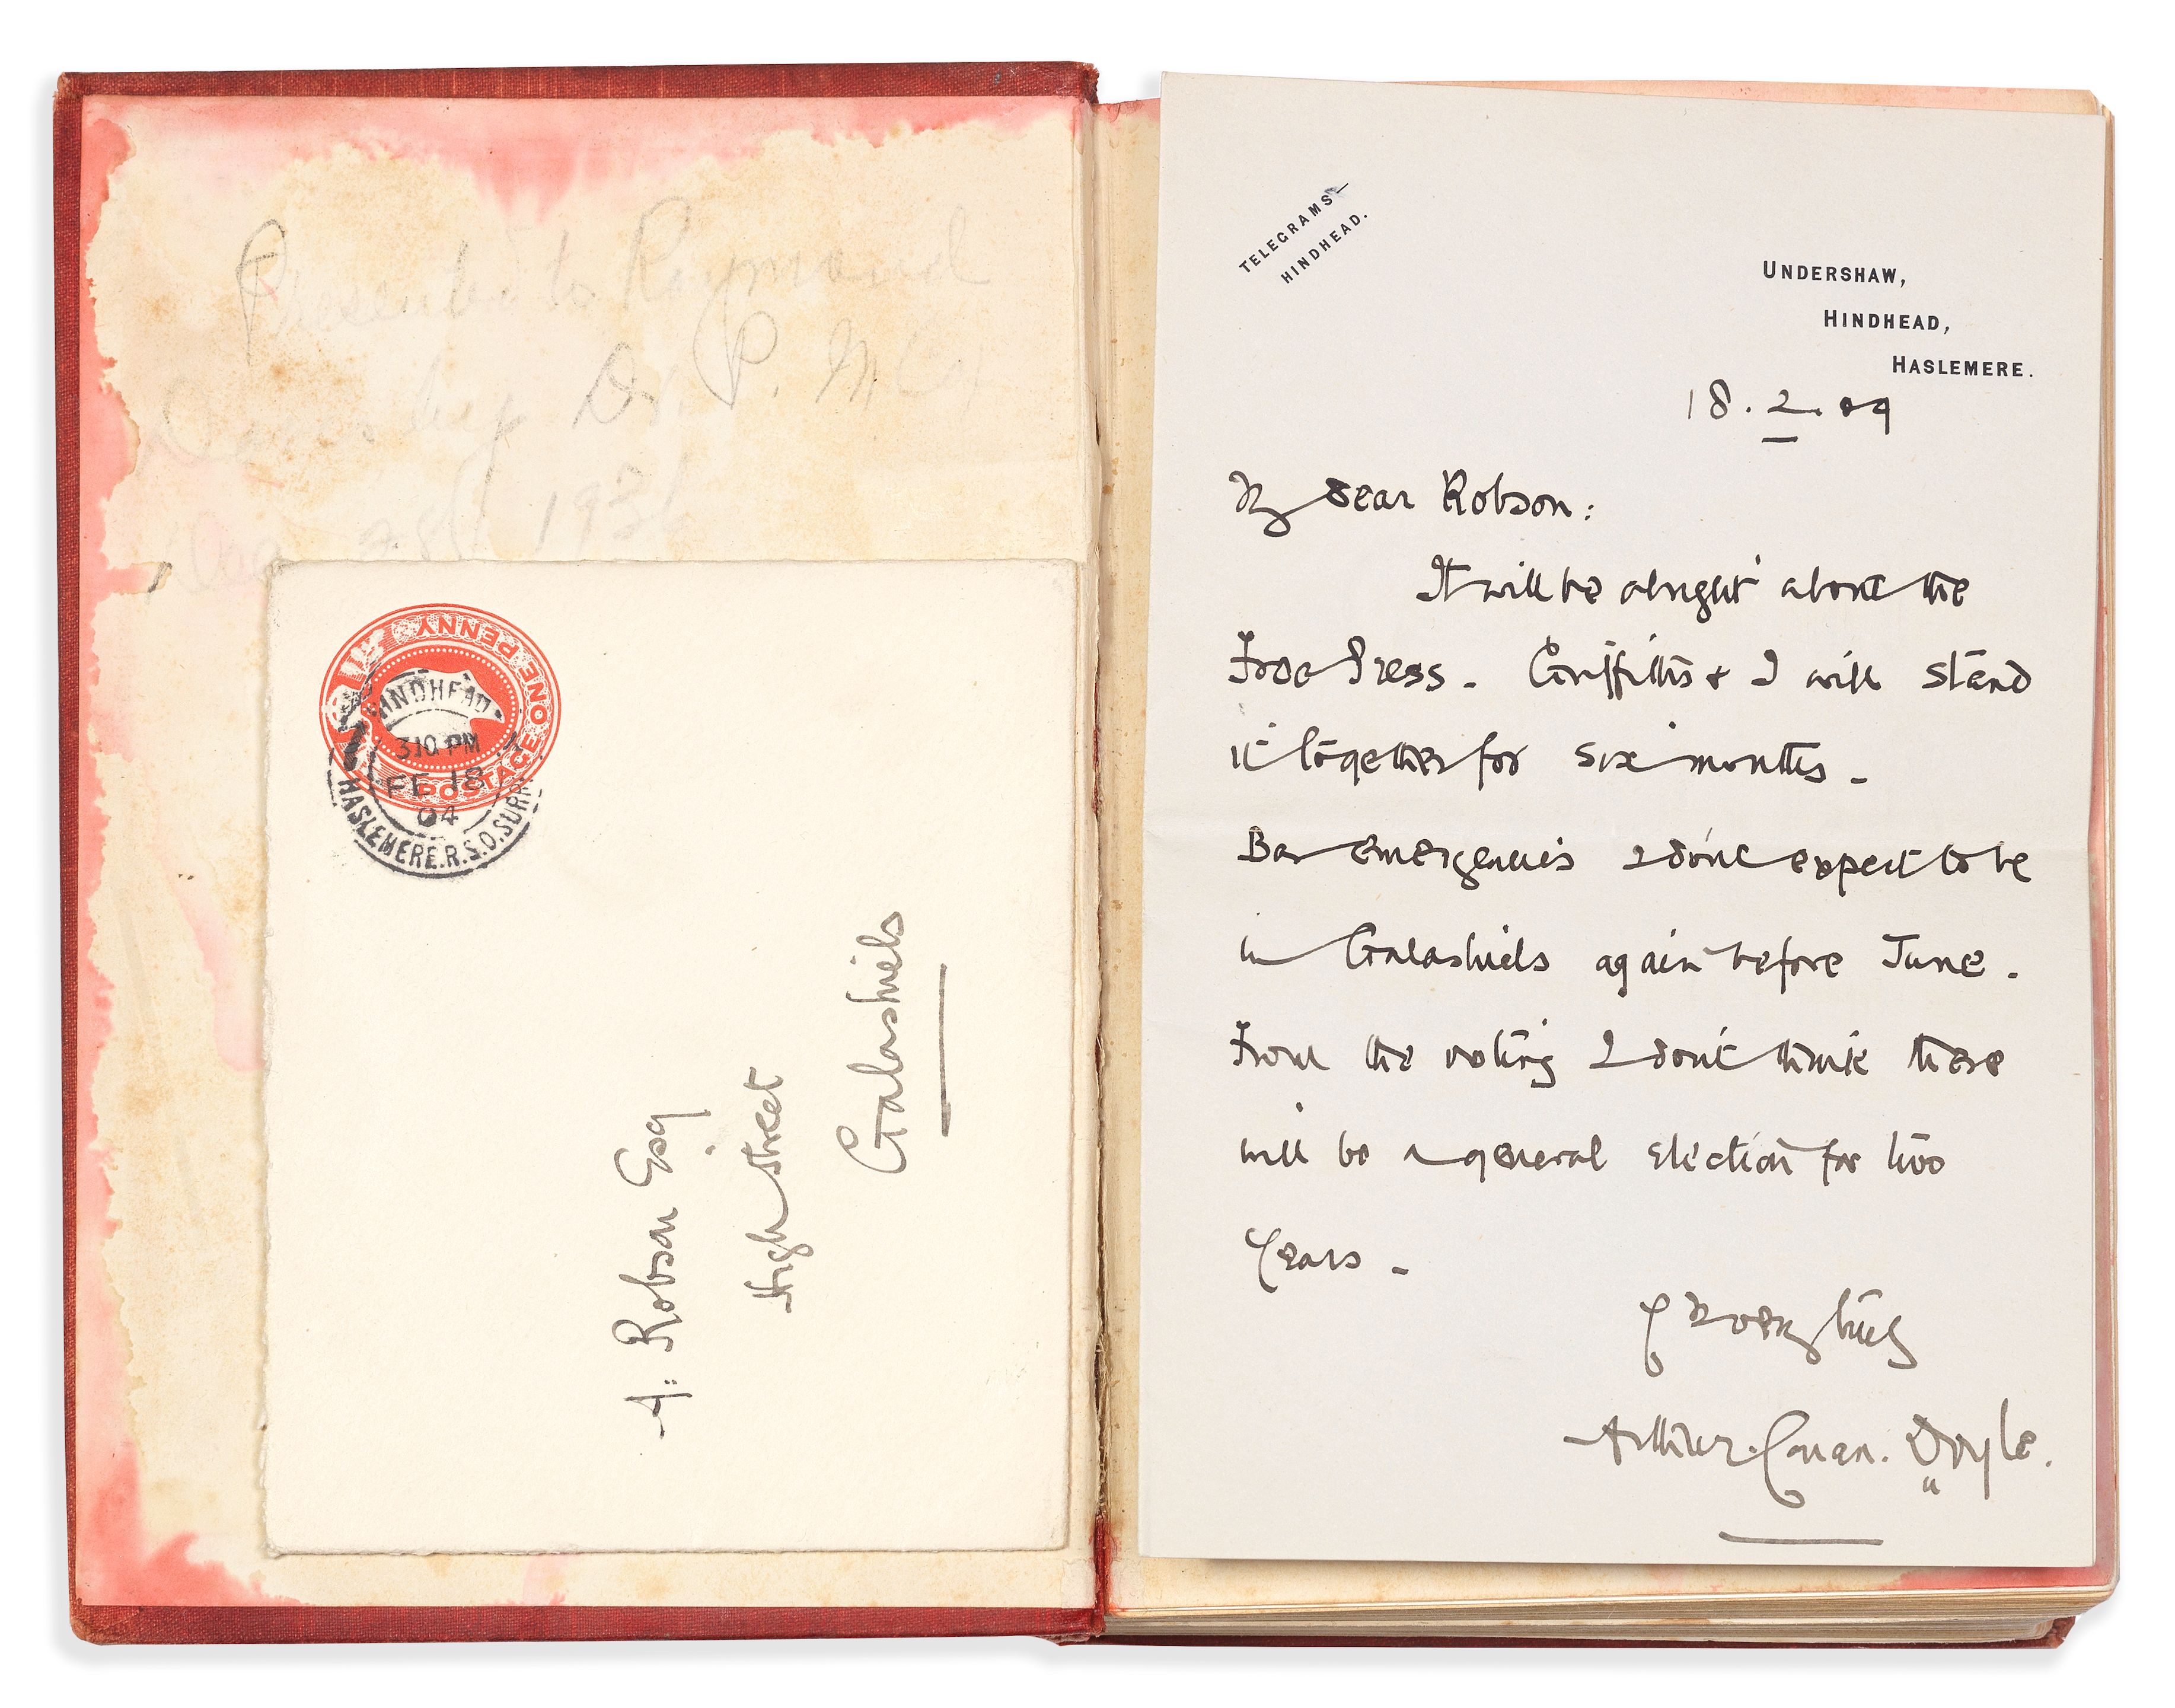 Presented to Raymond
by Dr. P. McC
193
ONE PENNY
POSTAGE
HINDHEAD
3 10 PM
FE 18
04
HASLEMERE.R.S.O.SURR
A: Robson Esq
High Street
Galashiels
TELEGRAMS-
HINDHEAD.
UNDERSHAW,
HINDHEAD,
HASLEMERE.
18.2.04
My dear Robson:
It will be alright about the
Free Press. Griffiths & I will stand
it together for six months -
Bar emergencies I dont expect to be
in Galashiels again before June.
From the voting I dont think there
will be a general election for two
years -
Yours very truly
Arthur Conan Doyle.